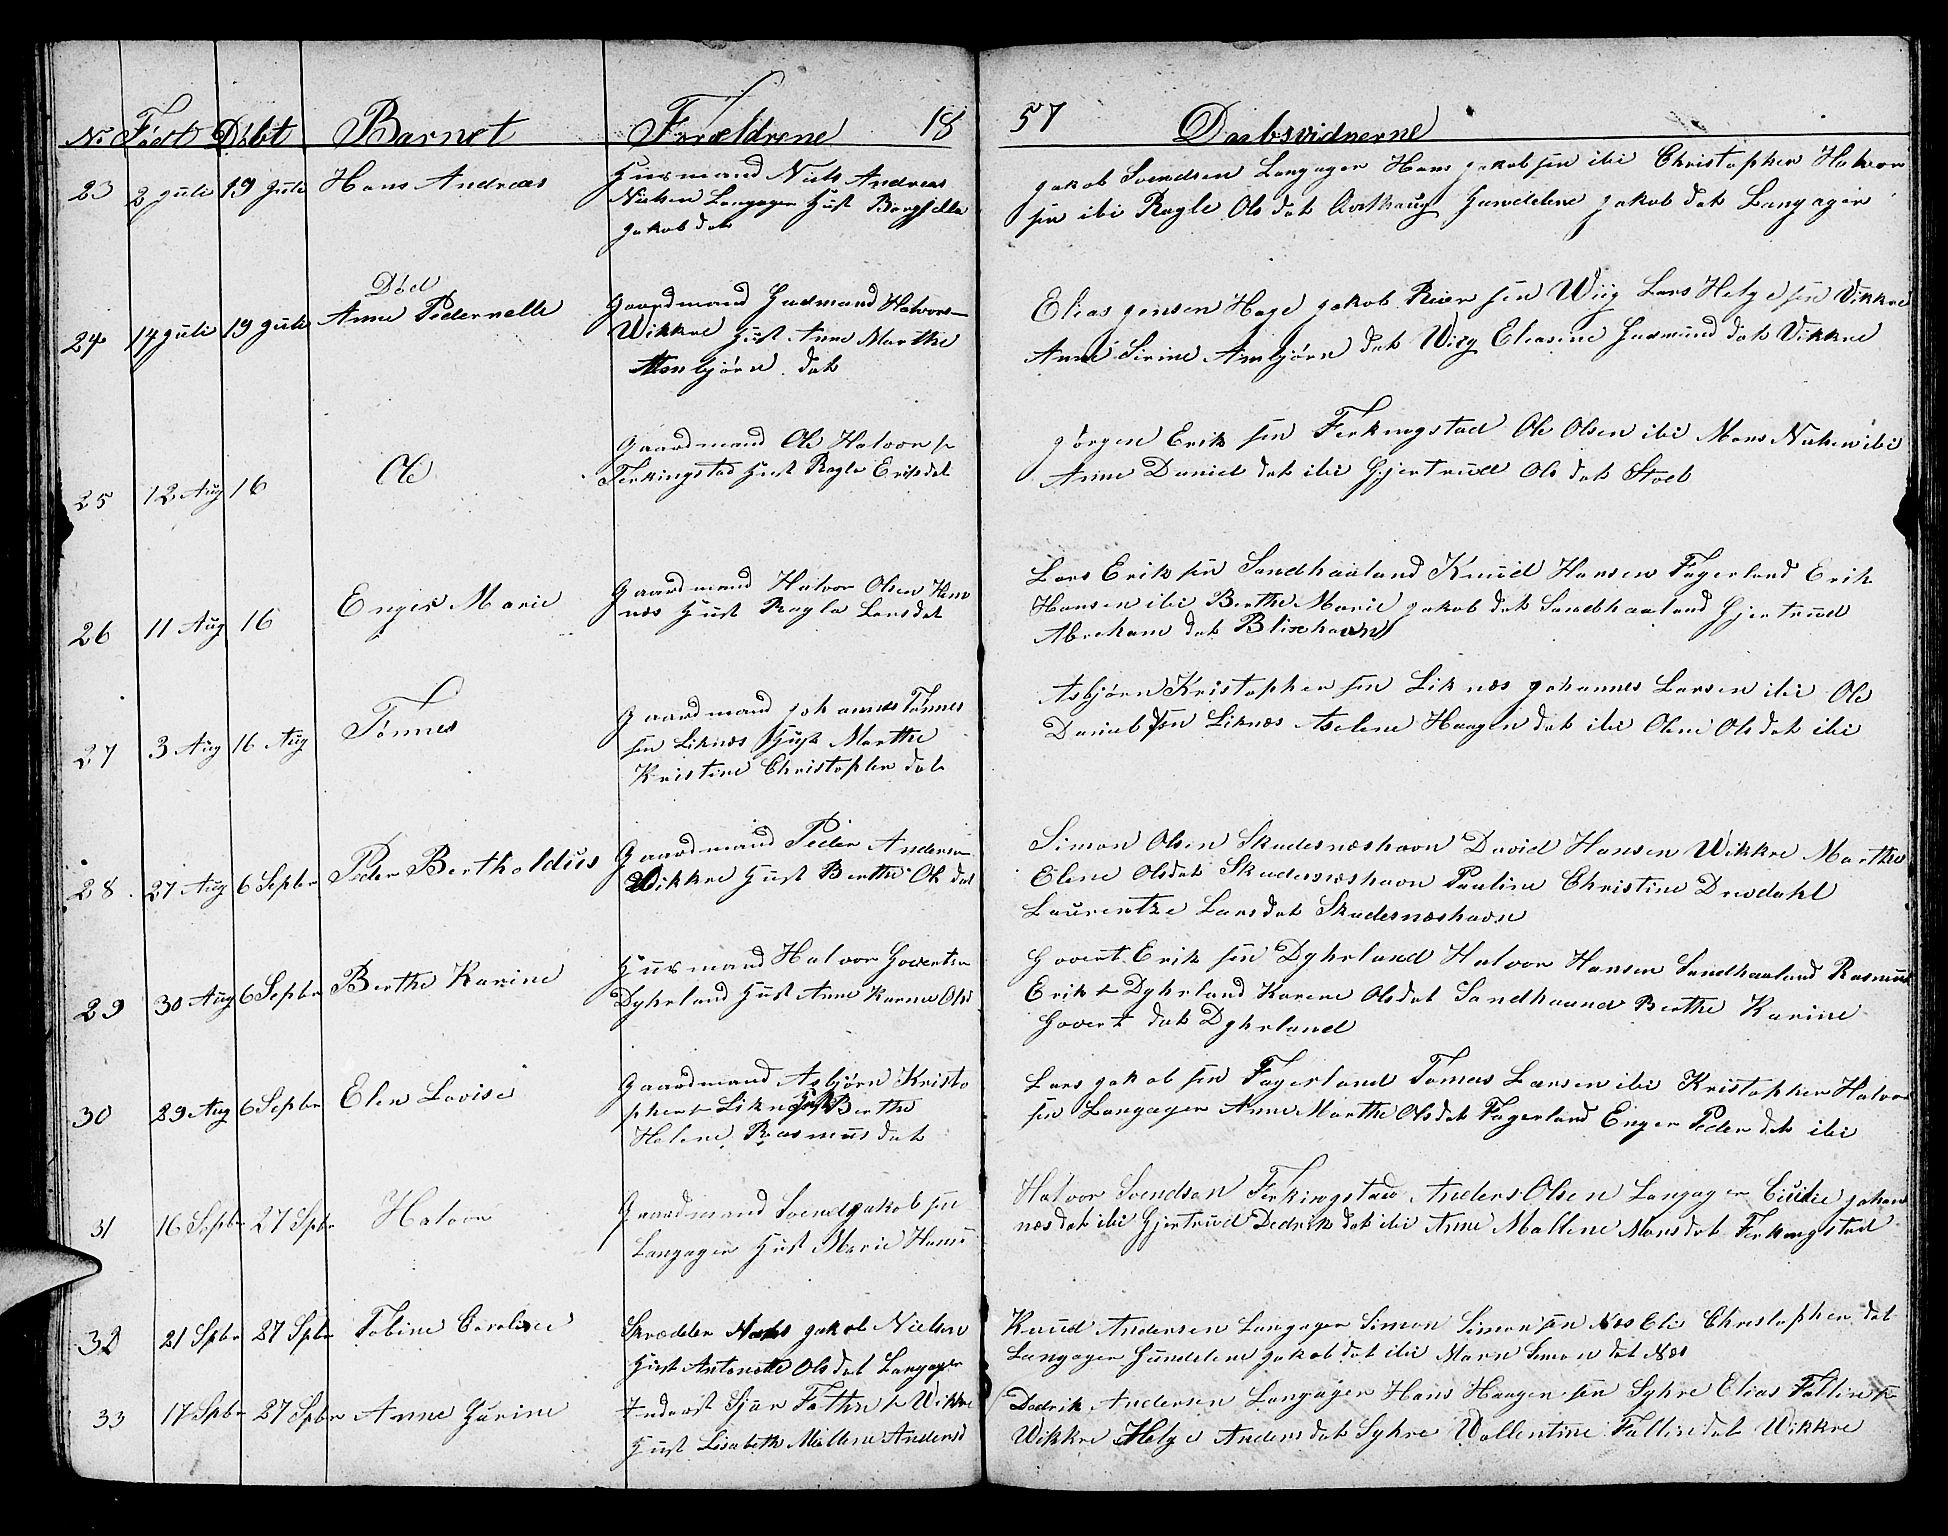 No Født Døbt Barnet Forældrene 18 57 Daabsvidnerne
23 2 Juli 19 Juli Hans Andreas Huusmand Niels Andreas
Nielsen Langager Hust
Jakob dat
Jakob Svendsen Langager Hans Jakob sen ibi Christopher Halvor
sen ibi Ragle Ols dat Gundelene Jakob dat Langager
Død
24 14 Juli 19 Juli Anne Pedernelle Gaardmand Gudmund Halvors
Wikkre Hust Anne Marthe
Asnbjørn dat
Elias Jensen Hage Jakob Reier sen Wiig Lars Helge sen Vikkre
Anne Sirine Asnbjørn dat Wiig Eliasine Gudmund dat Vikkre
25 12 Aug 16 Ole Gaardmand Ole Halvor s
Ferkingstad Hust Ragla Eriksdat
Jørgen Erik sen Ferkingstad Ole Olsen ibi Mons Nielsen ibi
Anne Daniel dat ibi Gjertrud Ols dat Stoel
26 11 Aug 16 Enger Marie Gaardmand Halvor Olsen Hem
næs Hust Ragla Larsdat
Lars Erik sen Sandhaaland Knud Hansen Fagerland Erik
Hansen ibi Berthe Marie Jakob dat Sandhaaland Gjertrud
Abraham dat Blixhavn
27 3 Aug 16 Aug Tønnes Gaardmand Johannes Tønnes
sen Liknæs Hust Marthe
Kristine Christopher dat
Asbjørn Kristopher sen Liknæs Johannes Larsen ibi Ole
Daniel sen Liknæs Aselene Haagen dat ibi Olene Olsdat ibi
28 27 Aug 6 Sepbr Peder Bertholdus Gaardmand Peder Andersen
Wikkre Hust Berthe Ols dat
Simon Olsen Skudesnæshavn David Hansen Wikkre Marthe
Elene Olsdat Skudesnæshavn Pauline Christine Dresdahl
Laurentze Larsdat Skudesnæshavn
29 30 Aug 6 Sepbr Berthe Karine Huusmand Halvor Govertsen
Dyhrland Hust Anne Karine Olsd
Govert Erik sen Dyhrland Halvor Hansen Sandhaaland Rasmus
Erik s Dyhrland Karene Olsdat Sandhaaund Berthe Karine
Govert dat Dyhrland
30 29 Aug 6 Sepbr Elen Lovise Gaardmand Asbjørn Kristo
phers Liknæs Hust Berthe
Helene Rasmus dat
Lars Jakob sen Fagerland Tomas Larsen ibi Kristopher Halvor
sen Langager Anne Marthe Olsdat Fagerland Enger Peder dat ibi
31 16 Sepbr 27 Spbr Halvor Gaardmand Svend Jakob sen
Langager Hust Marie Hans
Halvor Svendsen Ferkingstad Anders Olsen Langager Cicilie Johan
næs dat ibi Gjertrud Dedrik dat ibi Anne Mallene Monsdat Ferkingstad
32 21 Spbr 27 Spbr Tobine Caroline Skrædder Jakob Nielsen
Hust Antonette Olsdat Langager
Knud Andersen Langager Simon Simonsen Næs Eli Christopher dat
Langager Gundelene Jakob dat ibi Maren Simon dat Næs
33 17 Spbr 27 Spbr Anne Gurine Inderst Sjur Fallin s Wikkre
Hust Lisabeth Mallene Andersd
Dedrik Andersen Langager Hans Haagen sen Syhre Elias Fallin s
Wikkre Helge Andersdat Syhre Wallentine Fallin dat Wikkre